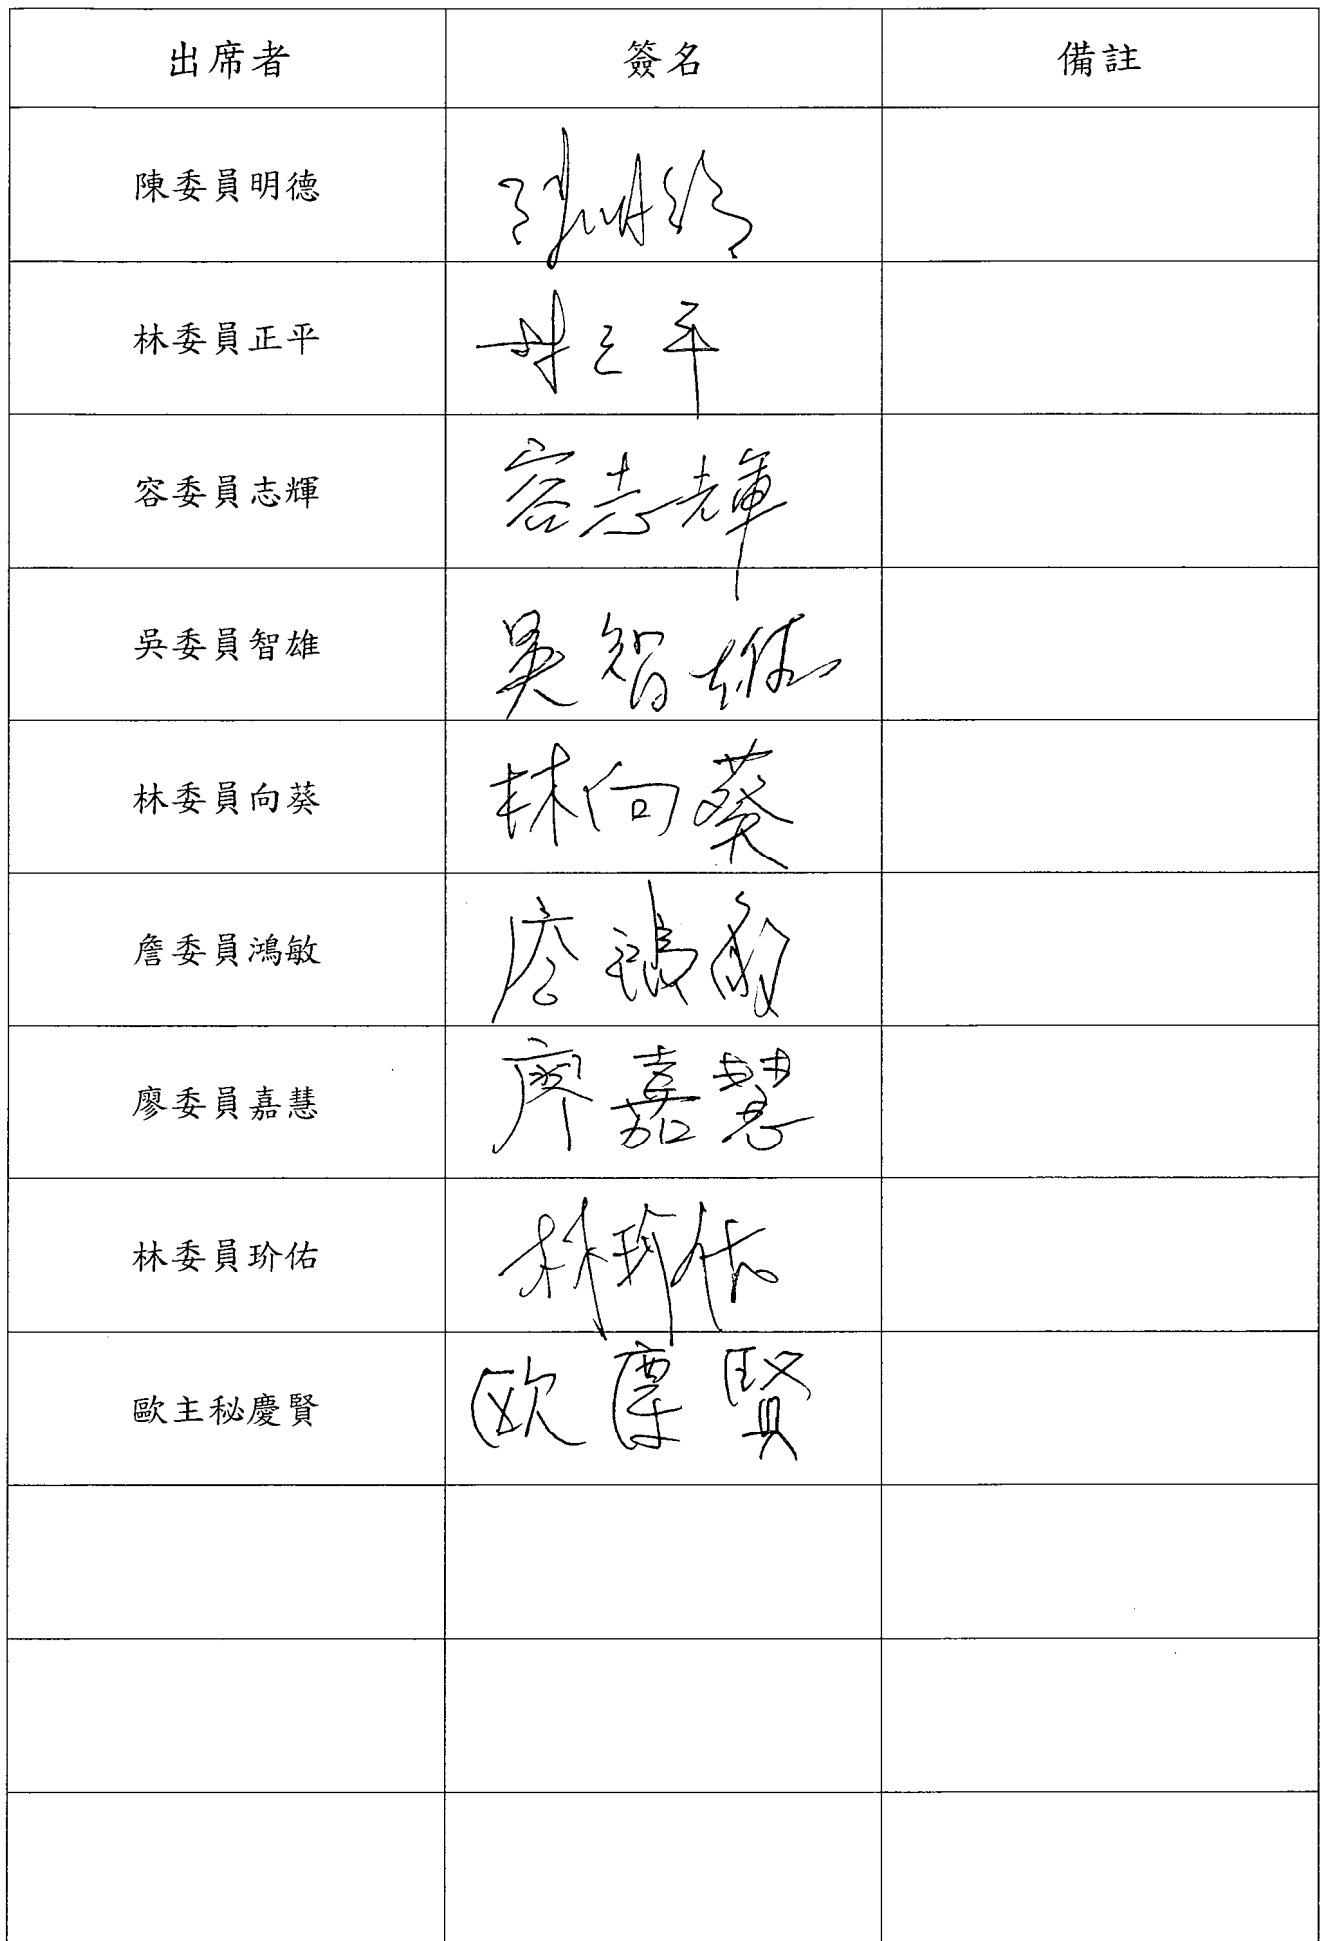 出席者 簽名 備註
陳委員明德 陳明德
林委員正平 林正平
容委員志輝 容志輝
吳委員智雄 吳智雄
林委員向葵 林向葵
詹委員鴻敏 詹鴻敏
廖委員嘉慧 廖嘉慧
林委員玠佑 林玠佑
歐主秘慶賢 欧慶賢